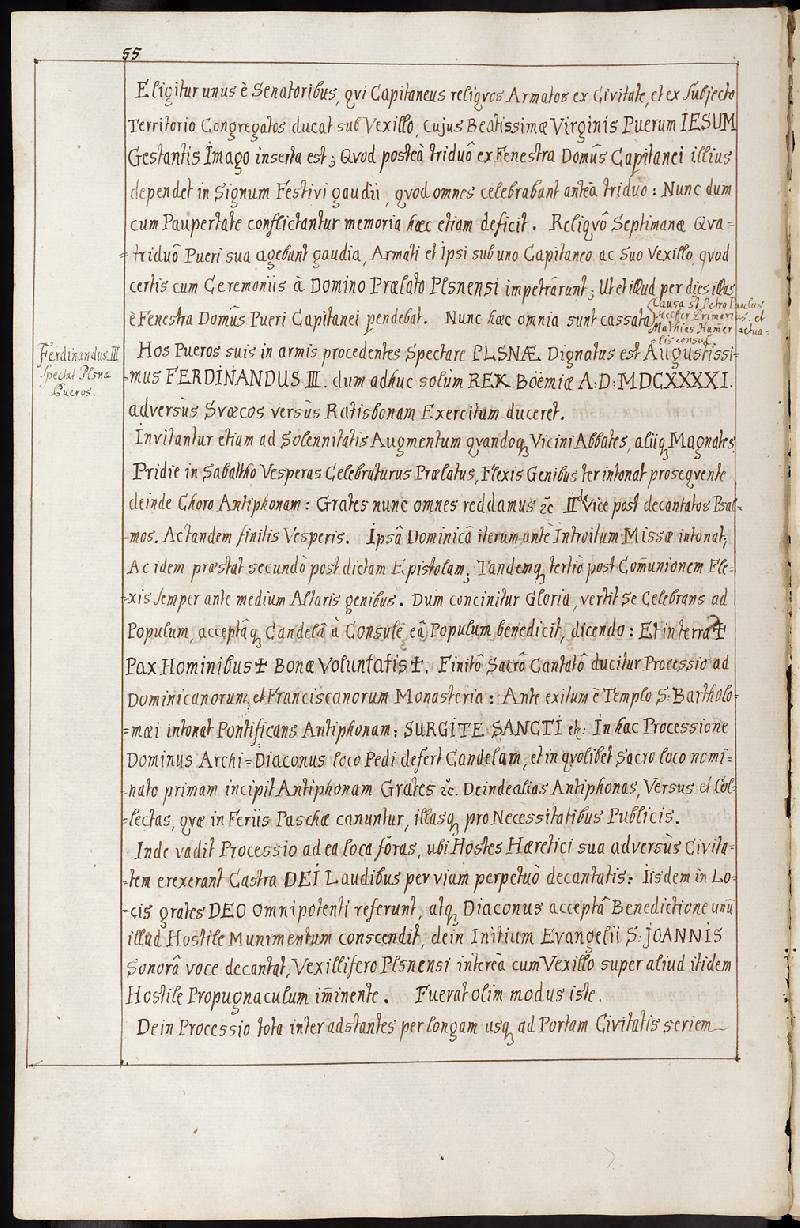 55
Eligitur unus è Senatoribus, qvi Capitaneus reliqvos Armatos ex Civitate, et ex Subjecto
Territorio Congregatos ducat sub Vexillo, cujus Beatissimæ Virginis Puerum IESUM
Gestantis Imago inserta est; Qvod posteà triduô ex Fenestra Domûs Capitanei illius
dependet in Signum Festivi gaudii, qvod omnes celebrabant anteà triduo: Nunc dum
cum Paupertate conflictantur memoria hæc etiam deficit. Reliqvô Septimanæ Qva=
=triduô Pueri sua agebant gaudia, Armati et Ipsi sub uno Capitaneo ac Suo Vexillo, qvod
certis cum Ceremoniis à Domino Prælato Plsnensi impetrârunt; Ut et illud per dies illos
è Fenestra Domûs Pueri Capitanei pendebat. Nunc hæc omnia sunt cassata,
Causa est Petro Paulus
Primarius, et
Mathias Hamer actua=
=lis consul.
Ferdinandus III
spectat Plsnæ
Pueros.
Hos Pueros suis in armis procedentes Spectare PLSNÆ Dignatus est Augustissi=
=mus FERDINANDUS III. dum adhuc solùm REX Böemiæ A: D: MDCXXXXI.
adversùs Svæcos versùs Ratisbonam Exercitum duceret.
Invitantur etiam ad Solennitatis Augmentum qvandoq; Vicini Abbates, aliiq; Magnates
Pridie in Sabatho Vesperas Celebraturus Prælatus, Flexis Genibus ter intonat proseqvente
deinde Choro Antiphonam: Grates nunc omnes reddamus &c IIdâ Vice post decantatos Psal=
=mos. Ac tandem finitis Vesperis. Ipsâ Dominicâ iterum ante Introitum Missæ intonat;
Ac idem præstat secundò post dictam Epistolam; Tandemq; tertiò post Comunionem Fle=
=xis semper ante medium Altaris genibus. Dum concinitur Gloria, vertit se Celebrans ad
Populum, acceptâq; Candelâ à Consule, eâ Populum benedicit, dicendo: Et in terra ✝
Pax Hominibus ✝ Bonæ Voluntatis ✝. Finitô Sacrô Cantatô ducitur Processio ad
Dominicanorum, et Franciscanorum Monasteria: Ante exitum è Templo S: Bartholo=
=mæi intonat Pontificans Antiphonam: SURGITE SANCTI etc: In hac Processione
Dominus Archi=Diaconus loco Pedi defert Candelam, et in qvolibet Sacro loco nomi=
=nato primam incipit Antiphonam Grates &c. Deinde alias Antiphonas, Versus et Col=
=lectas, qvæ in Feriis Paschæ canuntur, illasq; pro Necessitatibus Publicis.
Inde vadit Processio ad ea loca foras, ubi Hostes Hæretici sua adversùs Civita=
=tem erexerant Castra DEI Laudibus per viam perpetuò decantatis: Iisdem in Lo=
=cis grates DEO Omnipotenti referunt, atq; Diaconus acceptâ Benedictione unū
illud Hostile Munimentum conscendit, dein Initium Evangelii S: JOANNIS
Sonorâ voce decantat, Vexillifero Plsnensi intereà cum Vexillo super aliud itidem
Hostile Propugnaculum iminente. Fuerat olim modus iste.
Dein Processio tota inter adstantes per longam usq; ad Portam Civitatis seriem